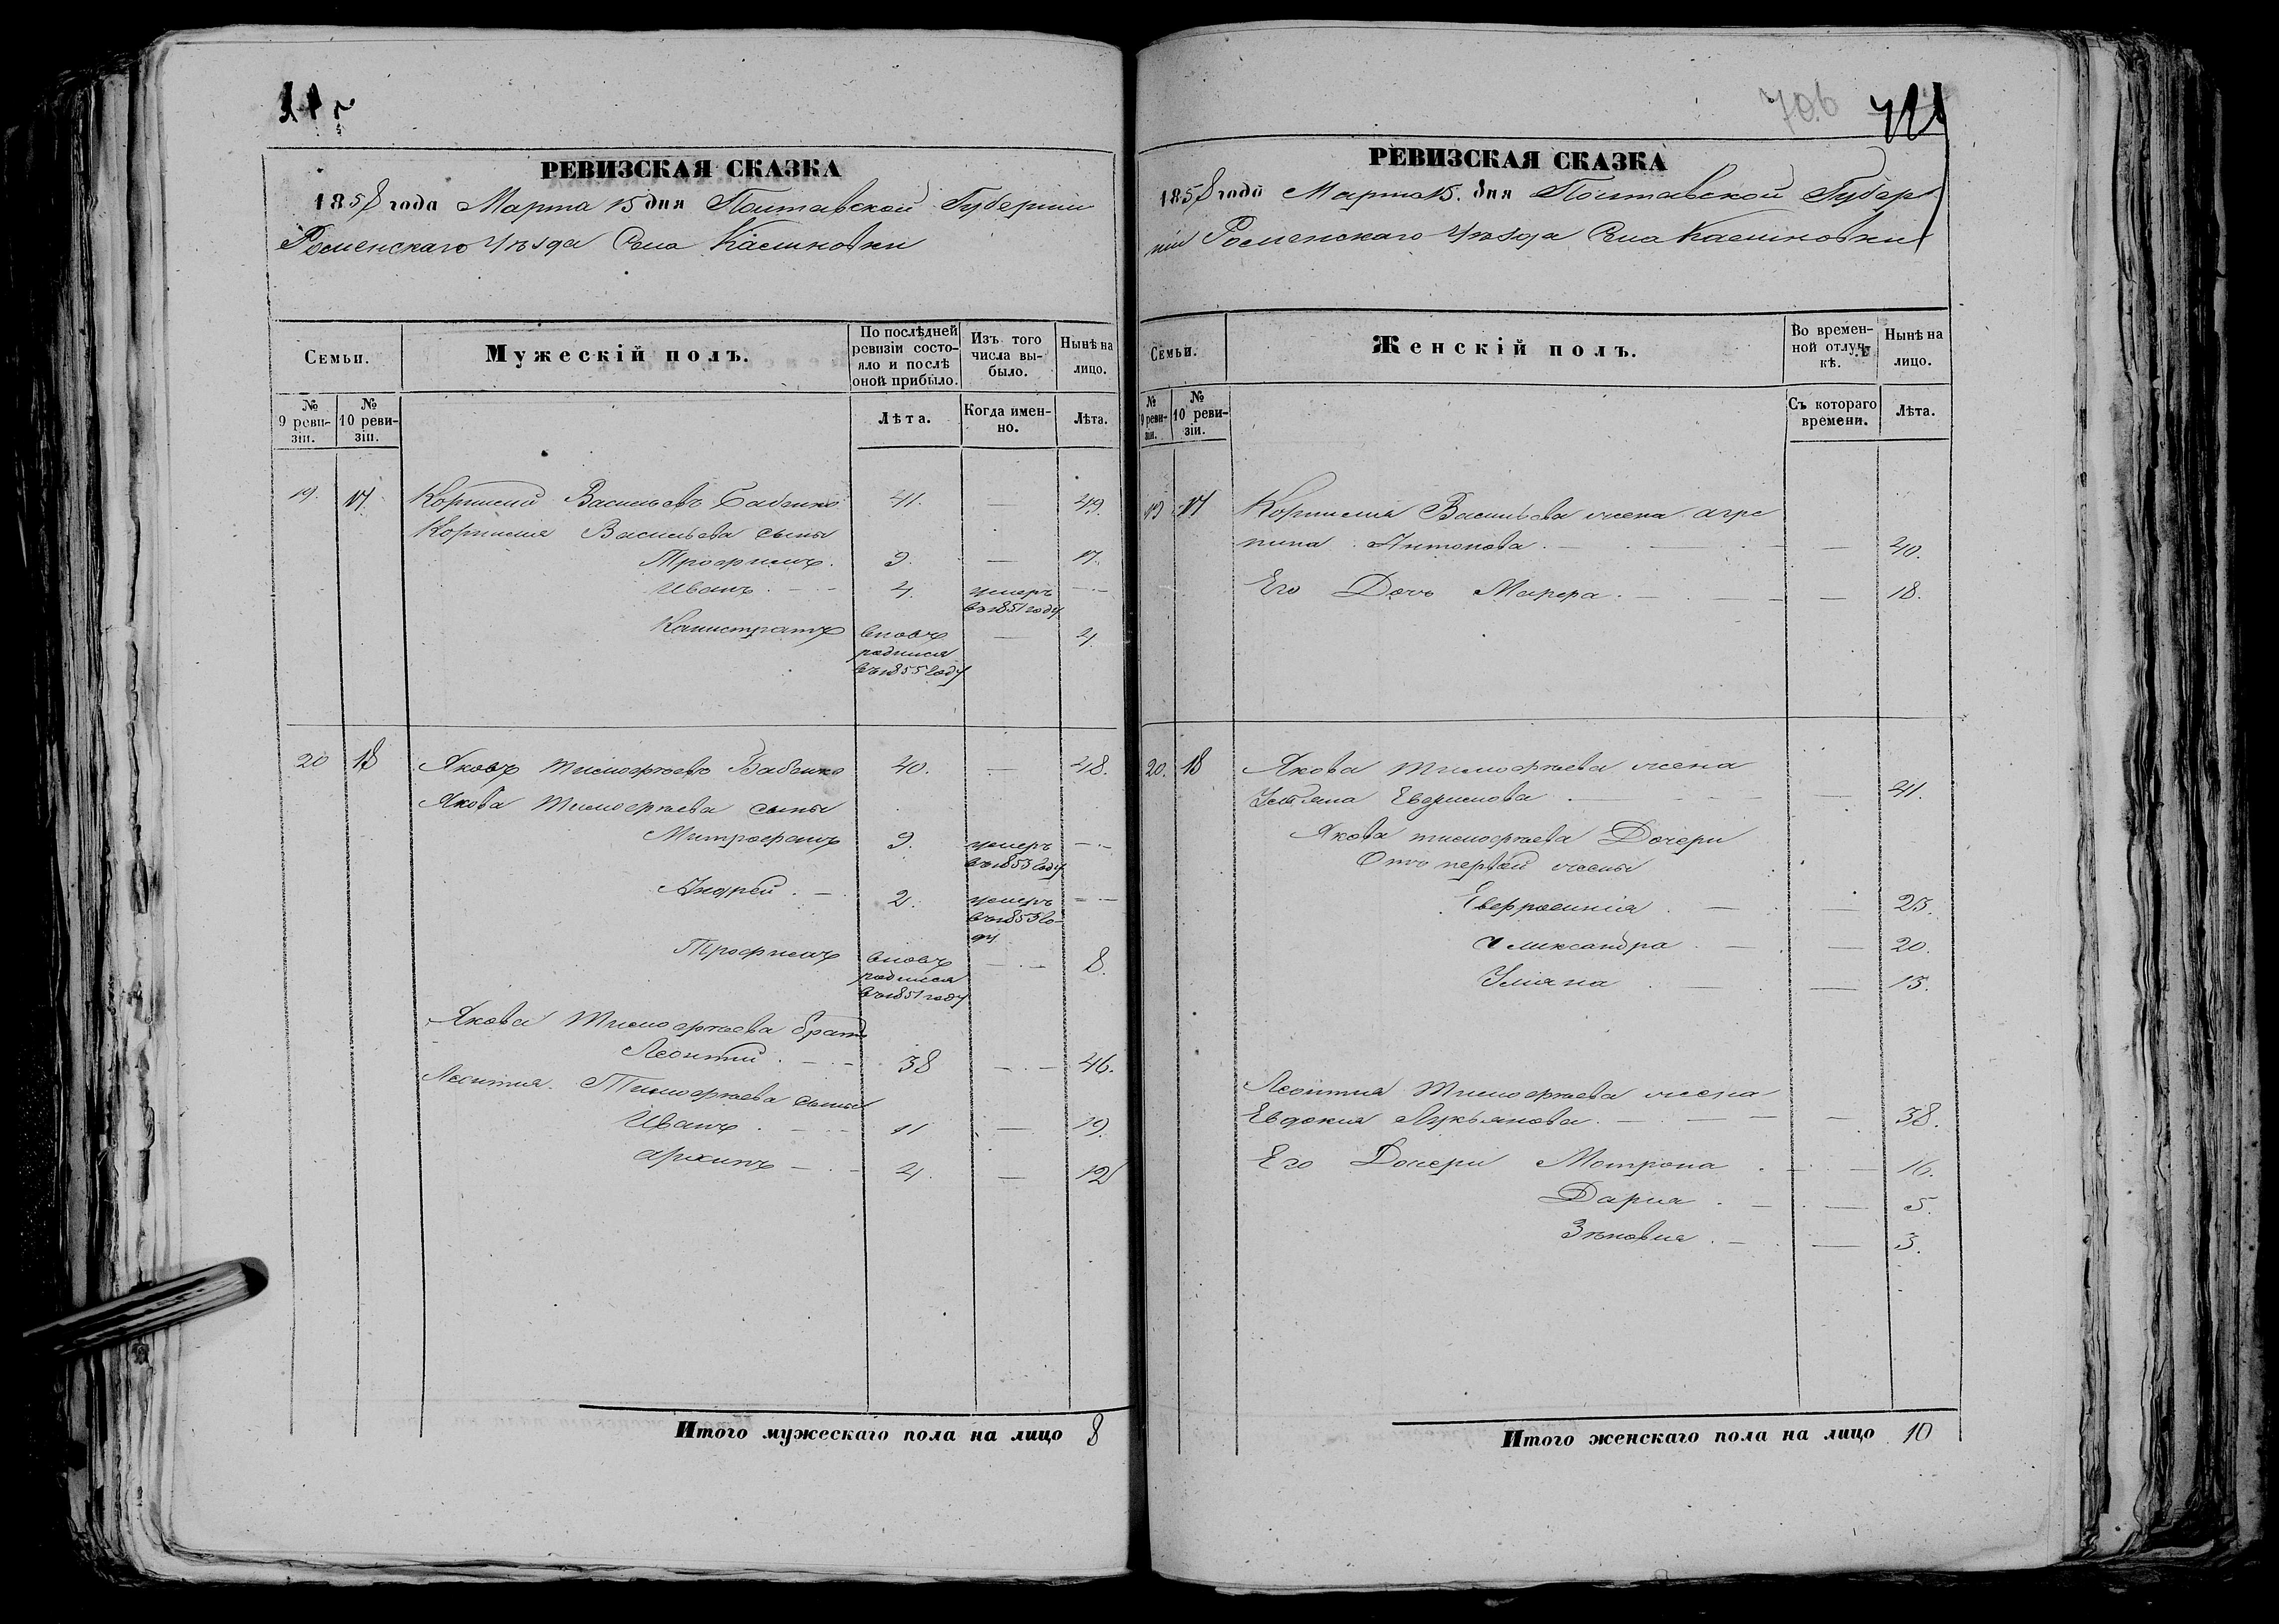 706
РЕВИЗСКАЯ СКАЗКА
1858 года Марта 15 дня Полтавской Губернии
Роменскаго Уѣзда Села Калиновки
Семьи.
Мужескій полъ.
По послѣдней ревизіи состояло и послѣ оной прибыло.
Изъ того числа выбыло.
Нынѣ на лицо.
№ 9 ревизіи.
№ 10 ревизіи.
Лѣта.
Когда именно.
Лѣта.
19. 17. Корнилий Васильевъ Бабенко 41. — 49.
Корнилия Васильева сыны
Трофимъ. 9. — 17.
Иванъ. — 4. умеръ въ 1851 году —
Калистратъ вновь родился въ 1855 году — 4.
20 18 Яковъ Тимофѣевъ Бабенко 40. — 48.
Якова Тимофѣева сыны
Митрофанъ 9. умеръ въ 1853 году —
Андрей. — 2. умеръ въ 1853 году —
Трофимъ вновь родился въ 1851 году — 8.
Якова Тимофѣева братъ
Леонтий. — 38 — 46.
Леонтия Тимофѣева сыны
Иванъ. — 11 — 19.
Архипъ — 4. — 12
Итого мужескаго пола на лицо 8
РЕВИЗСКАЯ СКАЗКА
1858 года Марта 15. дня Полтавской Губер
нии Роменскаго Уѣзда Села Калиновки
Семьи.
Женскій полъ.
Во временной отлучкѣ.
Нынѣ на лицо.
№ 9 ревизіи.
№ 10 ревизіи.
Съ котораго времени.
Лѣта.
19 17 Корнилия Васильева жена Агре
пина Антонова. — — 40.
Его Дочь Марфа. — — 18.
20. 18 Якова Тимофѣева жена
Ульяна Евфимова. — — 41.
Якова Тимофѣева Дочери
Отъ первой жены
Евфросиния. — — 25.
Александра. — — 20.
Ульяна. — — 15.
Леонтия Тимофѣева жена
Евдокия Лукьянова. — — 38.
Его Дочери Мотрона. — — 16.
Дария. — — 5.
Зѣновия. — — 3.
Итого женскаго пола на лицо 10